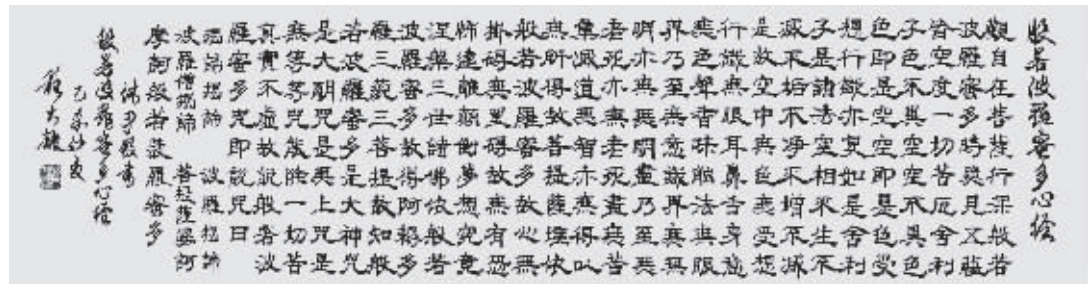 般若波羅蜜多心經
觀自在菩薩行深般若
波羅蜜多時照見五蘊
皆空度一切苦厄舍利
子色不異空空不異色
色即是空空即是色受
想行識亦復如是舍利
子是諸法空相不生不
滅不垢不淨不增不減
是故空中無色無受想
行識無眼耳鼻舌身意
無色聲香味觸法無眼
界乃至無意識界無無
明亦無無明盡乃至無
老死亦無老死盡無苦
集滅道無智亦無得以
無所得故菩提薩埵依
般若波羅蜜多故心無
掛礙無罣礙故無有恐
怖遠離顛倒夢想究竟
涅槃三世諸佛依般若
波羅蜜多故得阿耨多
羅三藐三菩提故知般
若波羅蜜多是大神咒
是大明咒是無上咒是
無等等咒能除一切苦
真實不虛故說般若波
羅蜜多咒即說咒曰
揭諦揭諦 波羅揭諦
波羅僧揭諦 菩提薩婆訶
摩訶般若波羅蜜多
般若波羅蜜多心經